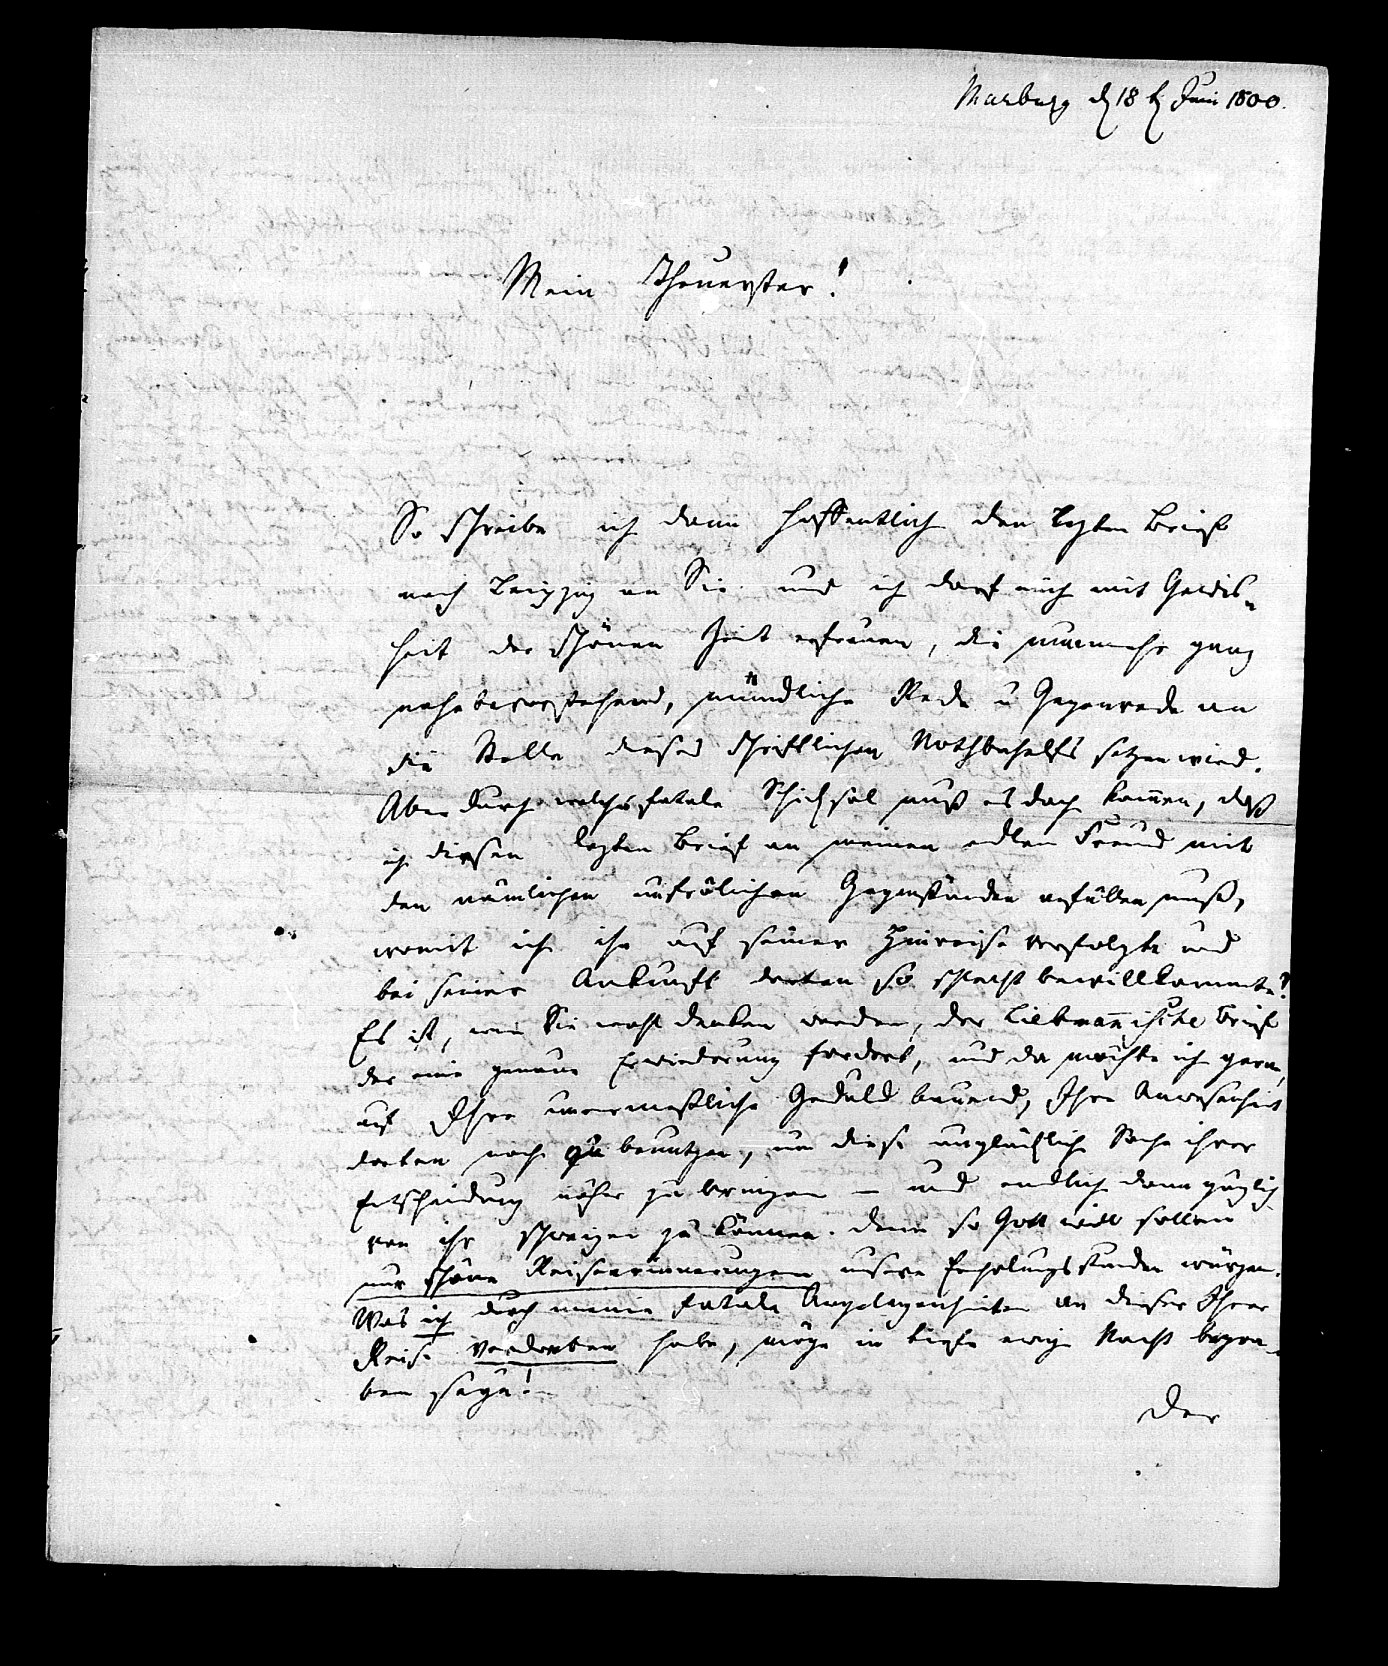 Marburg d 18 t Juni 1800.
Mein Theuerster!
So schreibe ich dann hoffentlich den lezten Brief
nach Leipzig an Sie und ich darf mich mit Gewis-
heit der schönen Zeit erfreuen, die nunmehr ganz
nahe bevorstehend, mündliche Rede u Gegenrede an
die Stelle dieses schriftlichen Nothbehelfs setzen wird.
Aber durch welches fatale Schicksal muß es doch kom̄en, daß
ich diesen lezten Brief an meinen edlen Freund mit
den nämlichen unfrölichen Gegenständen anfüllen muß,
womit ich ihn auf seiner Hinreise verfolgte und
bei seiner Ankunft dorten so schlecht bewillkommte?
Es ist, wie Sie wohl denken werden, der Liebman̄ische Brief
der eine genaue Erwiederung fordert, und da möchte ich gern,
auf Ihre unermeßliche Geduld bauend, Ihre Anwesenheit
dorten noch zu benutzen, um diese unglückliche Sache ihrer
Entscheidung näher zu bringen – und endlich dann gänzlich
von ihr schweigen zu können. Denn so Gott will sollen
nur schöne Reiseerinnerungen unsere Erholungsstunden würzen.
Was ich durch meine fatale Angelegenheiten an dieser Ihrer
Reise verdorben habe, möge in tiefe ewige Nacht begra-
ben seyn!
Der